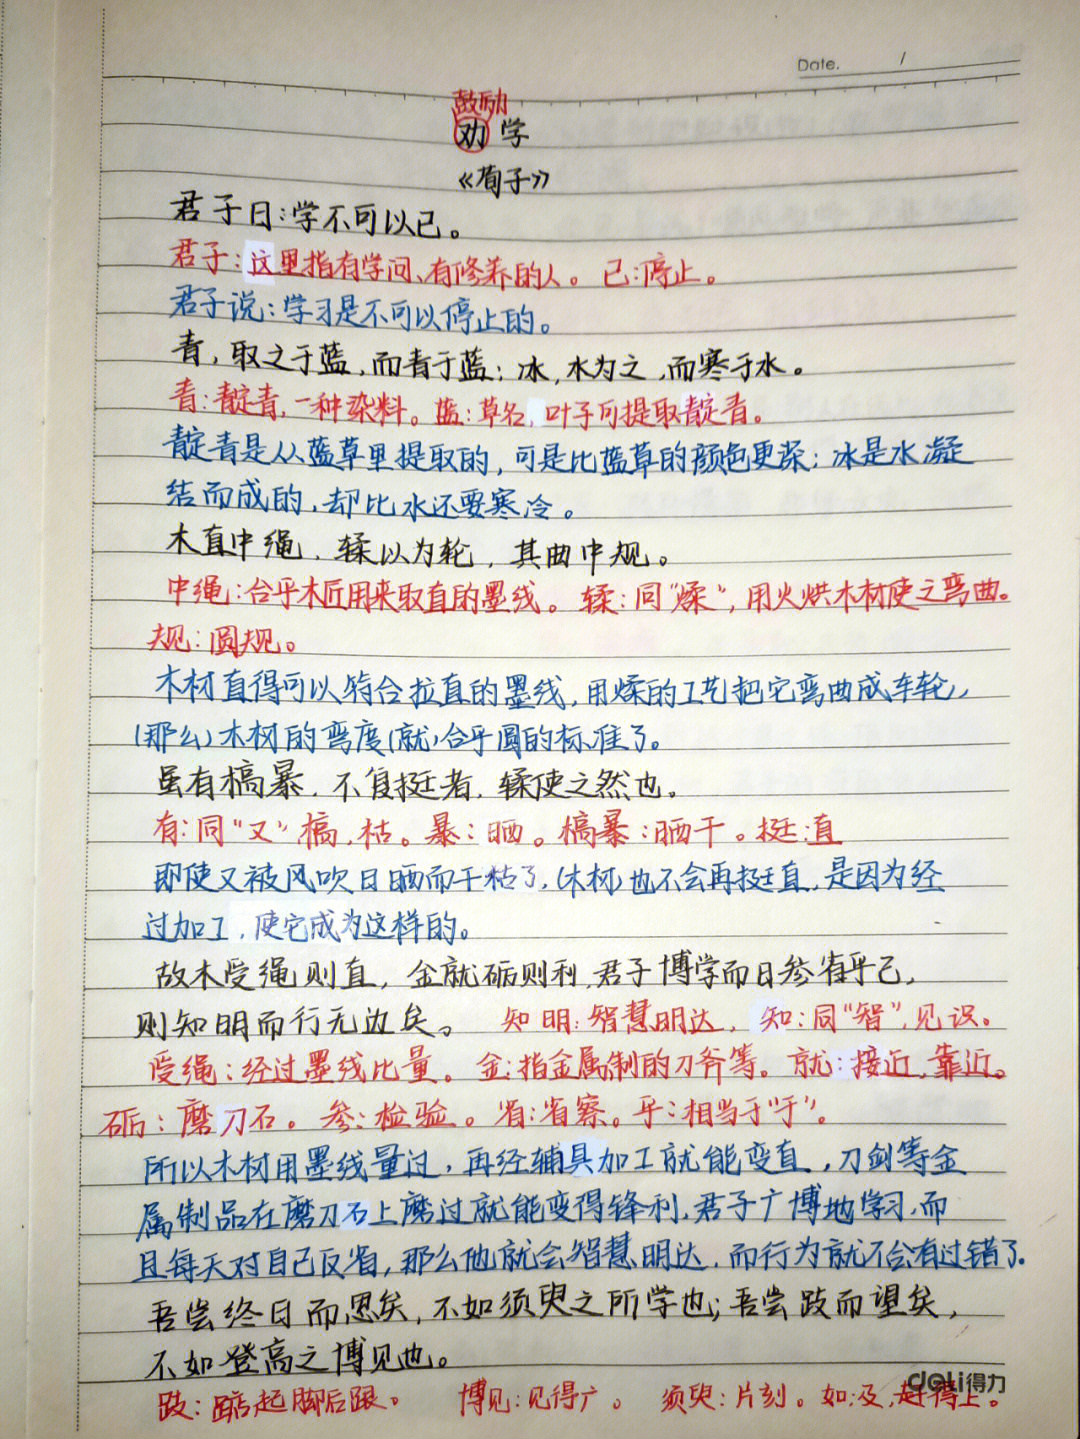 Date. /
鼓励
劝学
《荀子》
君子曰：学不可以已。
君子：这里指有学问、有修养的人。 已：停止。
君子说：学习是不可以停止的。
青，取之于蓝，而青于蓝；冰，水为之，而寒于水。
青：靛青，一种染料。蓝：草名，叶子可提取靛青。
靛青是从蓝草里提取的，可是比蓝草的颜色更深；冰是水凝
结而成的，却比水还要寒冷。
木直中绳，𫐓以为轮，其曲中规。
中绳：合乎木匠用来取直的墨线。𫐓：同“煣”，用火烘木材使之弯曲。
规：圆规。
木材直得可以符合拉直的墨线，用煣的工艺把它弯曲成车轮，
（那么）木材的弯度（就）合乎圆的标准了。
虽有槁暴，不复挺者，𫐓使之然也。
有：同“又”，槁，枯。暴：晒。槁暴：晒干。挺：直
即使又被风吹日晒而干枯了，（木材）也不会再挺直，是因为经
过加工，使它成为这样的。
故木受绳则直，金就砺则利，君子博学而日参省乎己，
则知明而行无过矣。 知明：智慧明达， 知：同“智”，见识。
受绳：经过墨线比量。金：指金属制的刀斧等。就：接近，靠近。
砺：磨刀石。参：检验。省：省察。乎：相当于“于”。
所以木材用墨线量过，再经辅具加工就能变直，刀剑等金
属制品在磨刀石上磨过就能变得锋利，君子广博地学习，而
且每天对自己反省，那么他就会智慧明达，而行为就不会有过错了。
吾尝终日而思矣，不如须臾之所学也；吾尝跂而望矣，
不如登高之博见也。
deli得力
跂：踮起脚后跟。 博见：见得广。 须臾：片刻。如：及，赶得上。